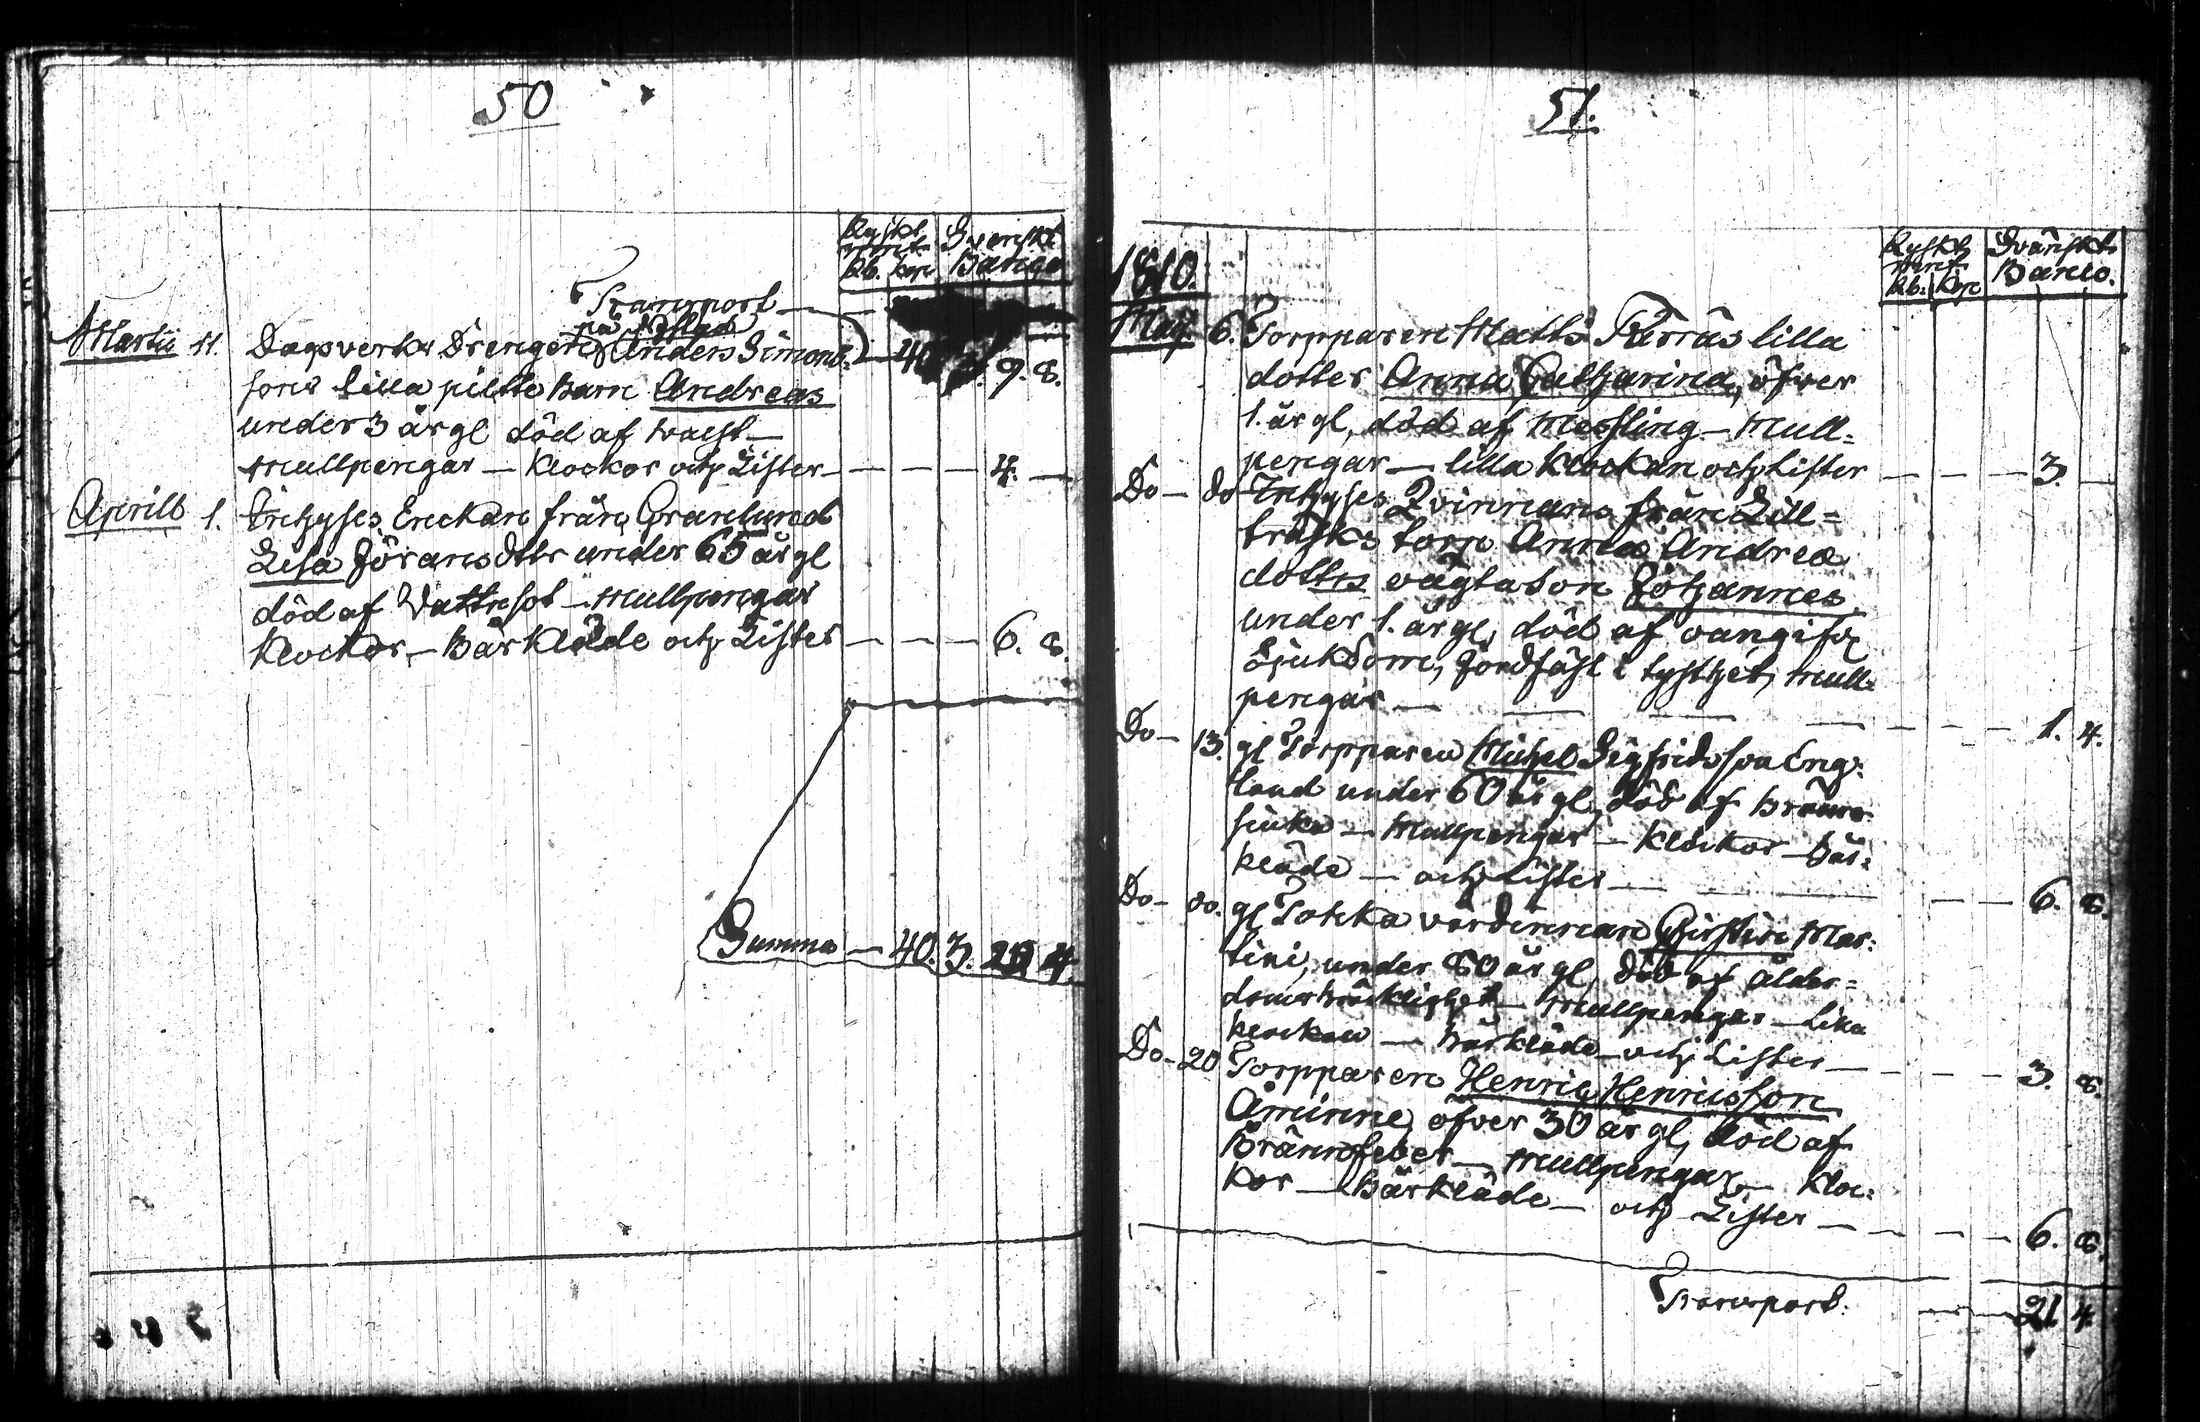 50
Ryskt Svenskt
mynt Banco
Rb. kop
Transport
på Ystad
Martii 11. Dagsverks Drengens Anders Simons- 40 9. 8.
sons lilla piltte Barn Andreas
under 3 år gl död af
Mullpengar — Klockor och Lister — 4. —
Aprill 1. Inhyses Enckan från Granlund
Lisa Jöransdttr under 65 år gl
död af Vattusot — Mullpengar
Klockor — Bårkläde och Lister — 6. 8.
Summa — 40. 3. 20 4.
51.
Ryskt Svänskt
mynt Banco.
Rb. Kop
1810.
Maij. 6. Torpparen Matts Färrås lilla
dotter Anna Catharina, öfver
1. år gl, död af Messling — Mull-
pengar — lilla klockan och Lister — 3. —
Do — do Inhyses Qvinnans från Lill-
träsks torp Anna Andreæ
dotters oägta son Johannes
under 1. år gl, död af oangifv
Sjukdom, Jordfäst i tysthet, Mull-
pengar — 1. 4.
Do — 13. gl Torpparen Michel Sigfridsson Eng-
lund under 60 år gl, död af Bränn-
siuka — Mullpengar — Klockor — Bår-
kläde — och Lister — 6. 8.
Do — do. gl värdinnan Christin Mar-
tini, under 80 år gl, död af ålder-
doms bräcklighet — Mullpengar — Lilla
klockan — Bårkläde — och Lister — 3. 8.
Do — 20 Torpparen Henric Henricsson
Åminne, öfver 30 år gl, död af
Brännfeber — Mullpengar — Kloc-
kor — Bårkläde — och Lister — 6. 8.
Transport. 21 4.